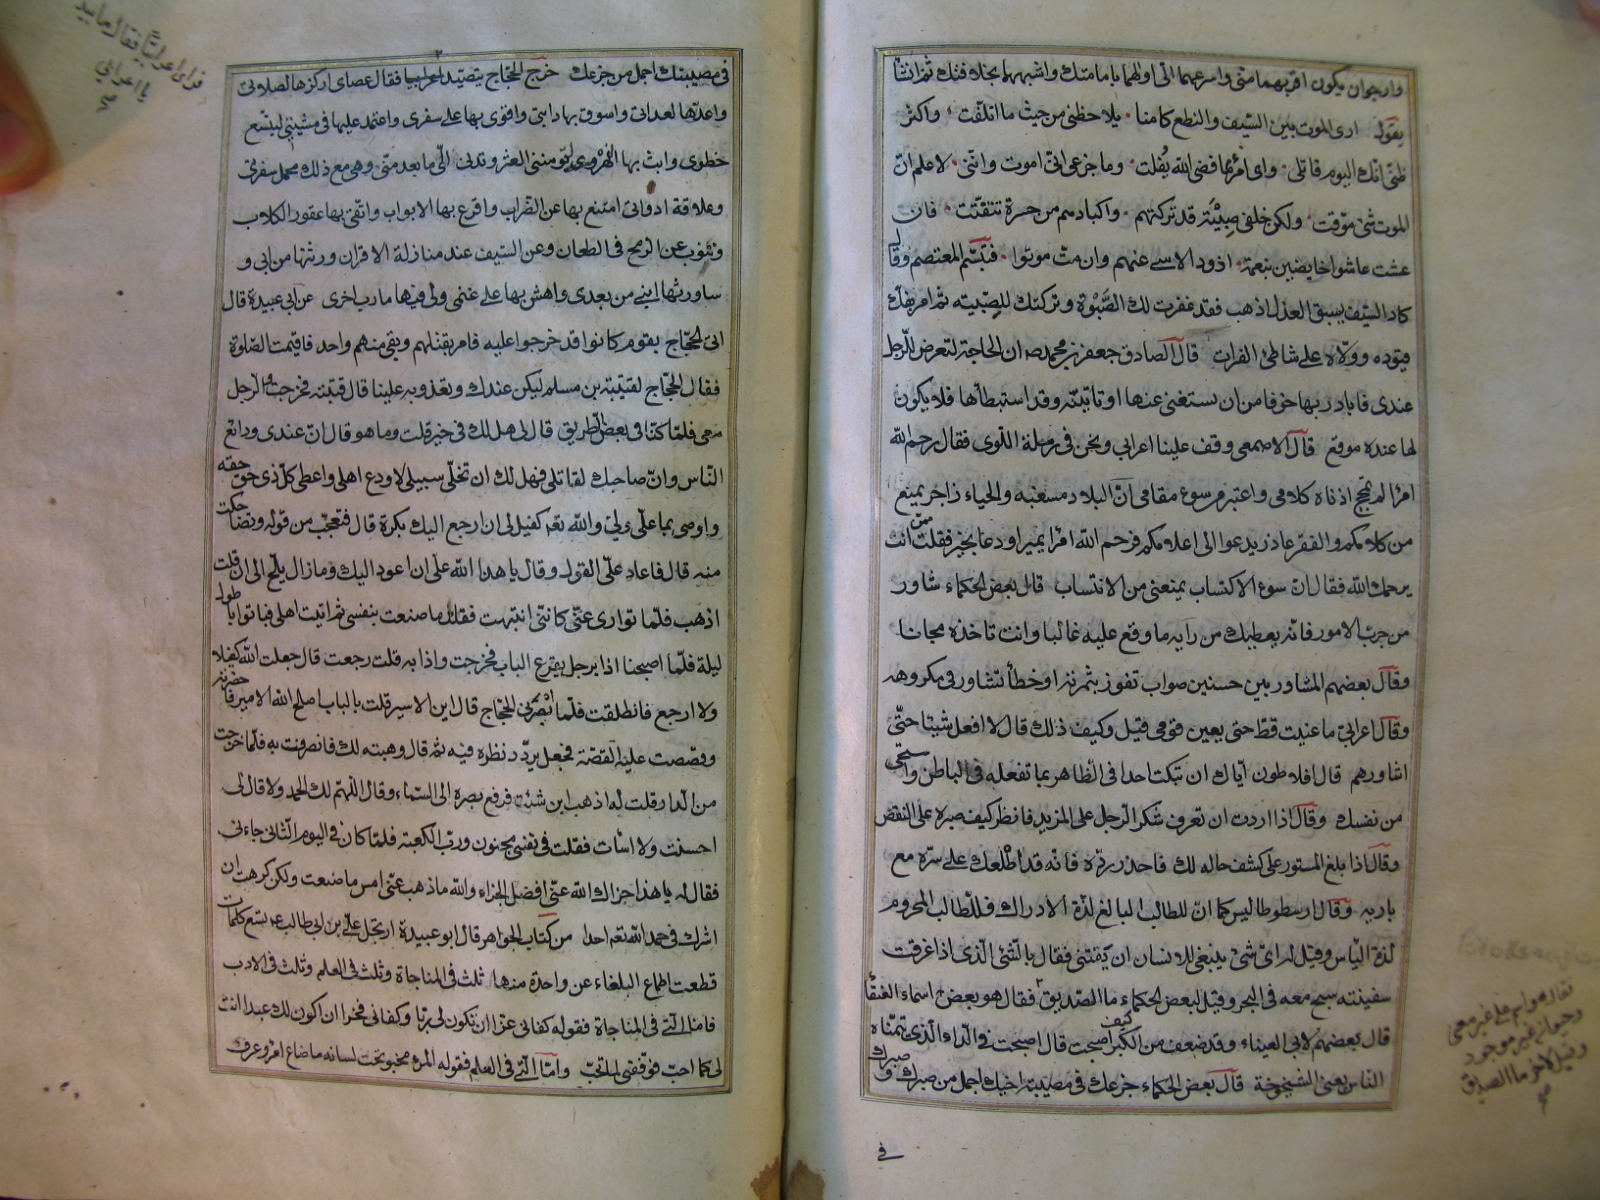 وارجوان يكون اقربهما منى واسرعهما الى اولهما بامامتك واشبههما بخلافتك ثم انشأ
يقول ارى الموت بين السيف والنطع كامنا يلاحظنى من حيث ما اتلفت واكثر
ظنى انك اليوم قاتلى واى امرئ مما قضى الله يفلت وما جزعى انى اموت واننى لاعلم ان
الموت شئ موقت ولكن خلفى صبية قد تركتهم واكبادهم من حسرة تتفتت فان
عشت عاشوا خافضين بنعمة اذود الاسى عنهم وان مت موتوا فتبسم المعتصم وقال
كاد السيف يسبق العذل اذهب فقد غفرت لك الصبوة وتركتك للصبيه ثم امر بفك
قيوده وولاه على شاطئ الفرات قال الصادق جعفر بن محمد ان الحاجة لتعرض للرجل
عندى فابادر بها خوفا من ان يستغنى عنها او تاتيه وقد استبطأها فلا يكون
لها عنده موقع قال الاصمعى وقف علينا اعرابى ونحن فى رملة اللوى فقال رحم الله
امرأ لم تمج اذناه كلامى واعتبر من سوء مقامى ان البلاد مسغبه والحياء زاجر يمنع
من كلامكم والفقر عاذر يدعوا الى اعلامكم فرحم الله امرأ يمير او دعا بخير فقلت ممن انت
يرحمك الله فقال ان سوء الاكتساب يمنعنى من الانتساب قال بعض الحكماء شاور
من جرب الامور فانه يعطيك من رايه ما وقع عليه غاليا وانت تاخذه مجانا
وقال بعضهم المشاور بين حسنين صواب تفوز بثمرته او خطأ تشاور فى مكروهه
وقال اعرابى ما غبنت قط حتى يغبن قومى قيل وكيف ذلك قال لا افعل شيئا حتى
اشاورهم قال افلاطون اياك ان تبكت احدا فى الظاهر بما تفعله فى الباطن واستحى
من نفسك وقال اذا اردت ان تعرف شكر الرجل على المزيد فانظر كيف صبره على النقص
وقال اذا بلغ المستور على كشف حاله لك فاحذر رده فانه قد اطلعك على سره مع
باريه وقال ارسطوطاليس كما ان للطالب البالغ لذة الادراك فللطالب المحروم
لذة الياس وقيل له اى شئ ينبغى للانسان ان يقتنى فقال بالشئ الذى اذا غرقت
سفينته سبح معه فى البحر وقيل لبعض الحكماء ما الصديق فقال هو بعض اسماء العنقا
قال بعضهم لابى العيناء وقد ضعف من الكبر كيف اصبحت قال اصبحت فى الداء الذى تمناه
الناس يعنى الشيخوخة قال بعض الحكماء جزعك فى مصيبة اخيك اجمل من صبرك وصبرك
فى
فقال هو اسم على غير معنى
وحيوان غير موجود
وقيل لاخر ما الصديق
صح
فى مصيبتك اجمل من جزعك خرج الحجاج يتصيد اعرابيا فقال عصاى اركزها لصلاتى
واعدها لعداتى واسوق بها دابتى واقوى بها على سفرى واعتمد عليها فى مشيتى ليتسع
خطوى واثب بها النهر وتومننى العثر وتدنى الى ما بعد منى وهى مع ذلك محمل سفرتى
وعلاقة ادواتى امتنع بها عن الضراب واقرع بها الابواب واتقى بها عقور الكلاب
وتنوب عن الرمح فى الطعان وعن السيف عند منازلة الاقران ورثتها من ابى و
ساورثها ابنى من بعدى واهش بها على غنمى ولى فيها مارب اخرى عن ابى عبيدة قال
اتى الحجاج بقوم كانوا قد خرجوا عليه فامر بقتلهم وبقى منهم واحد فاقيمت الصلوة
فقال الحجاج لقتيبة بن مسلم ليكن عندك وتغدو به علينا قال قتيبة فخرجت والرجل
معى فلما كنا فى بعض الطريق قال لى هل لك فى خير قلت وما هو قال ان عندى ودائع
الناس وان صاحبك لقاتلى فهل لك ان تخلى سبيلى لاودع اهلى واعطى كل ذى حق حقه
واوصى بما على ولى والله تعم كفيل لى ان ارجع اليك بكرة قال فتعجبت من قوله وتضاحكت
منه قال فاعاد على القول وقال يا هذا الله على ان اعود اليك وما زال يلح الى ان قلت
اذهب فلما توارى عنى كاننى انتبهت فقلت ما صنعت بنفسى ثم اتيت اهلى فباتوا باطول
ليلة فلما اصبحنا اذا برجل يقرع الباب فخرجت واذا به قلت رجعت قال جعلت الله كفيلا
ولا ارجع فانطلقت فلما بصر بى الحجاج قال اين الاسير قلت بالباب اصلح الله الامير فاحضرته
وقصصت عليه القصة فجعل يردد نظره فيه ثم قال وهبته لك فانصرفت به فلما خرجت
من الدار قلت له اذهب اين شئت فرفع بصره الى السماء وقال اللهم لك الحمد ولا قال لى
احسنت ولا اسأت فقلت فى نفسى مجنون ورب الكعبة فلما كان فى اليوم الثانى جاءنى
فقال له يا هذا جزاك الله عنى افضل الجزاء والله ما ذهب عنى امس ما صنعت ولكن كرهت ان
اشرك فى حمد الله تعم احدا من كتاب الجواهر قال ابو عبيدة ارتجل على بن ابى طالب عم تسع كلمات
قطعت اطماع البلغاء عن واحدة منها ثلث فى المناجاة وثلث فى العلم وثلث فى الادب
فاما التى فى المناجاة فقوله كفانى عزا ان تكون لى ربا وكفانى فخرا ان اكون لك عبدا انت
لى كما احب فوفقنى لما تحب واما التى فى العلم فقوله المرء مخبو تحت لسانه ما ضاع امرؤ عرف
فراى اعرابيا فقال ما بيدك
يا اعرابى
صح